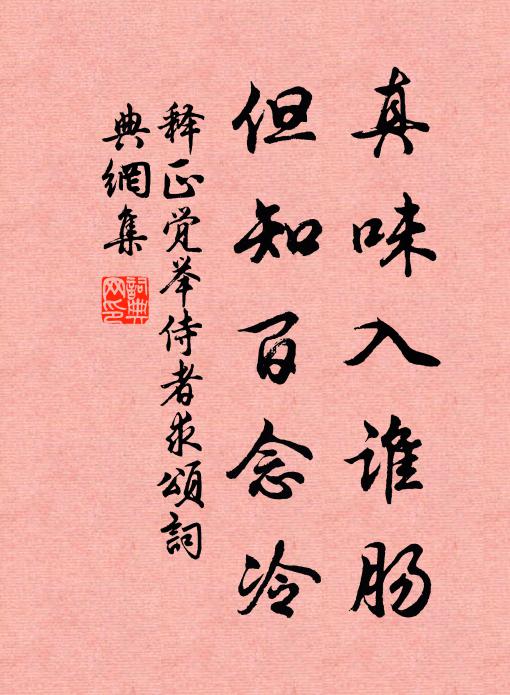 真味入谁肠
但知百念冷
释正觉举侍者求颂詞
典網集
詞典网印